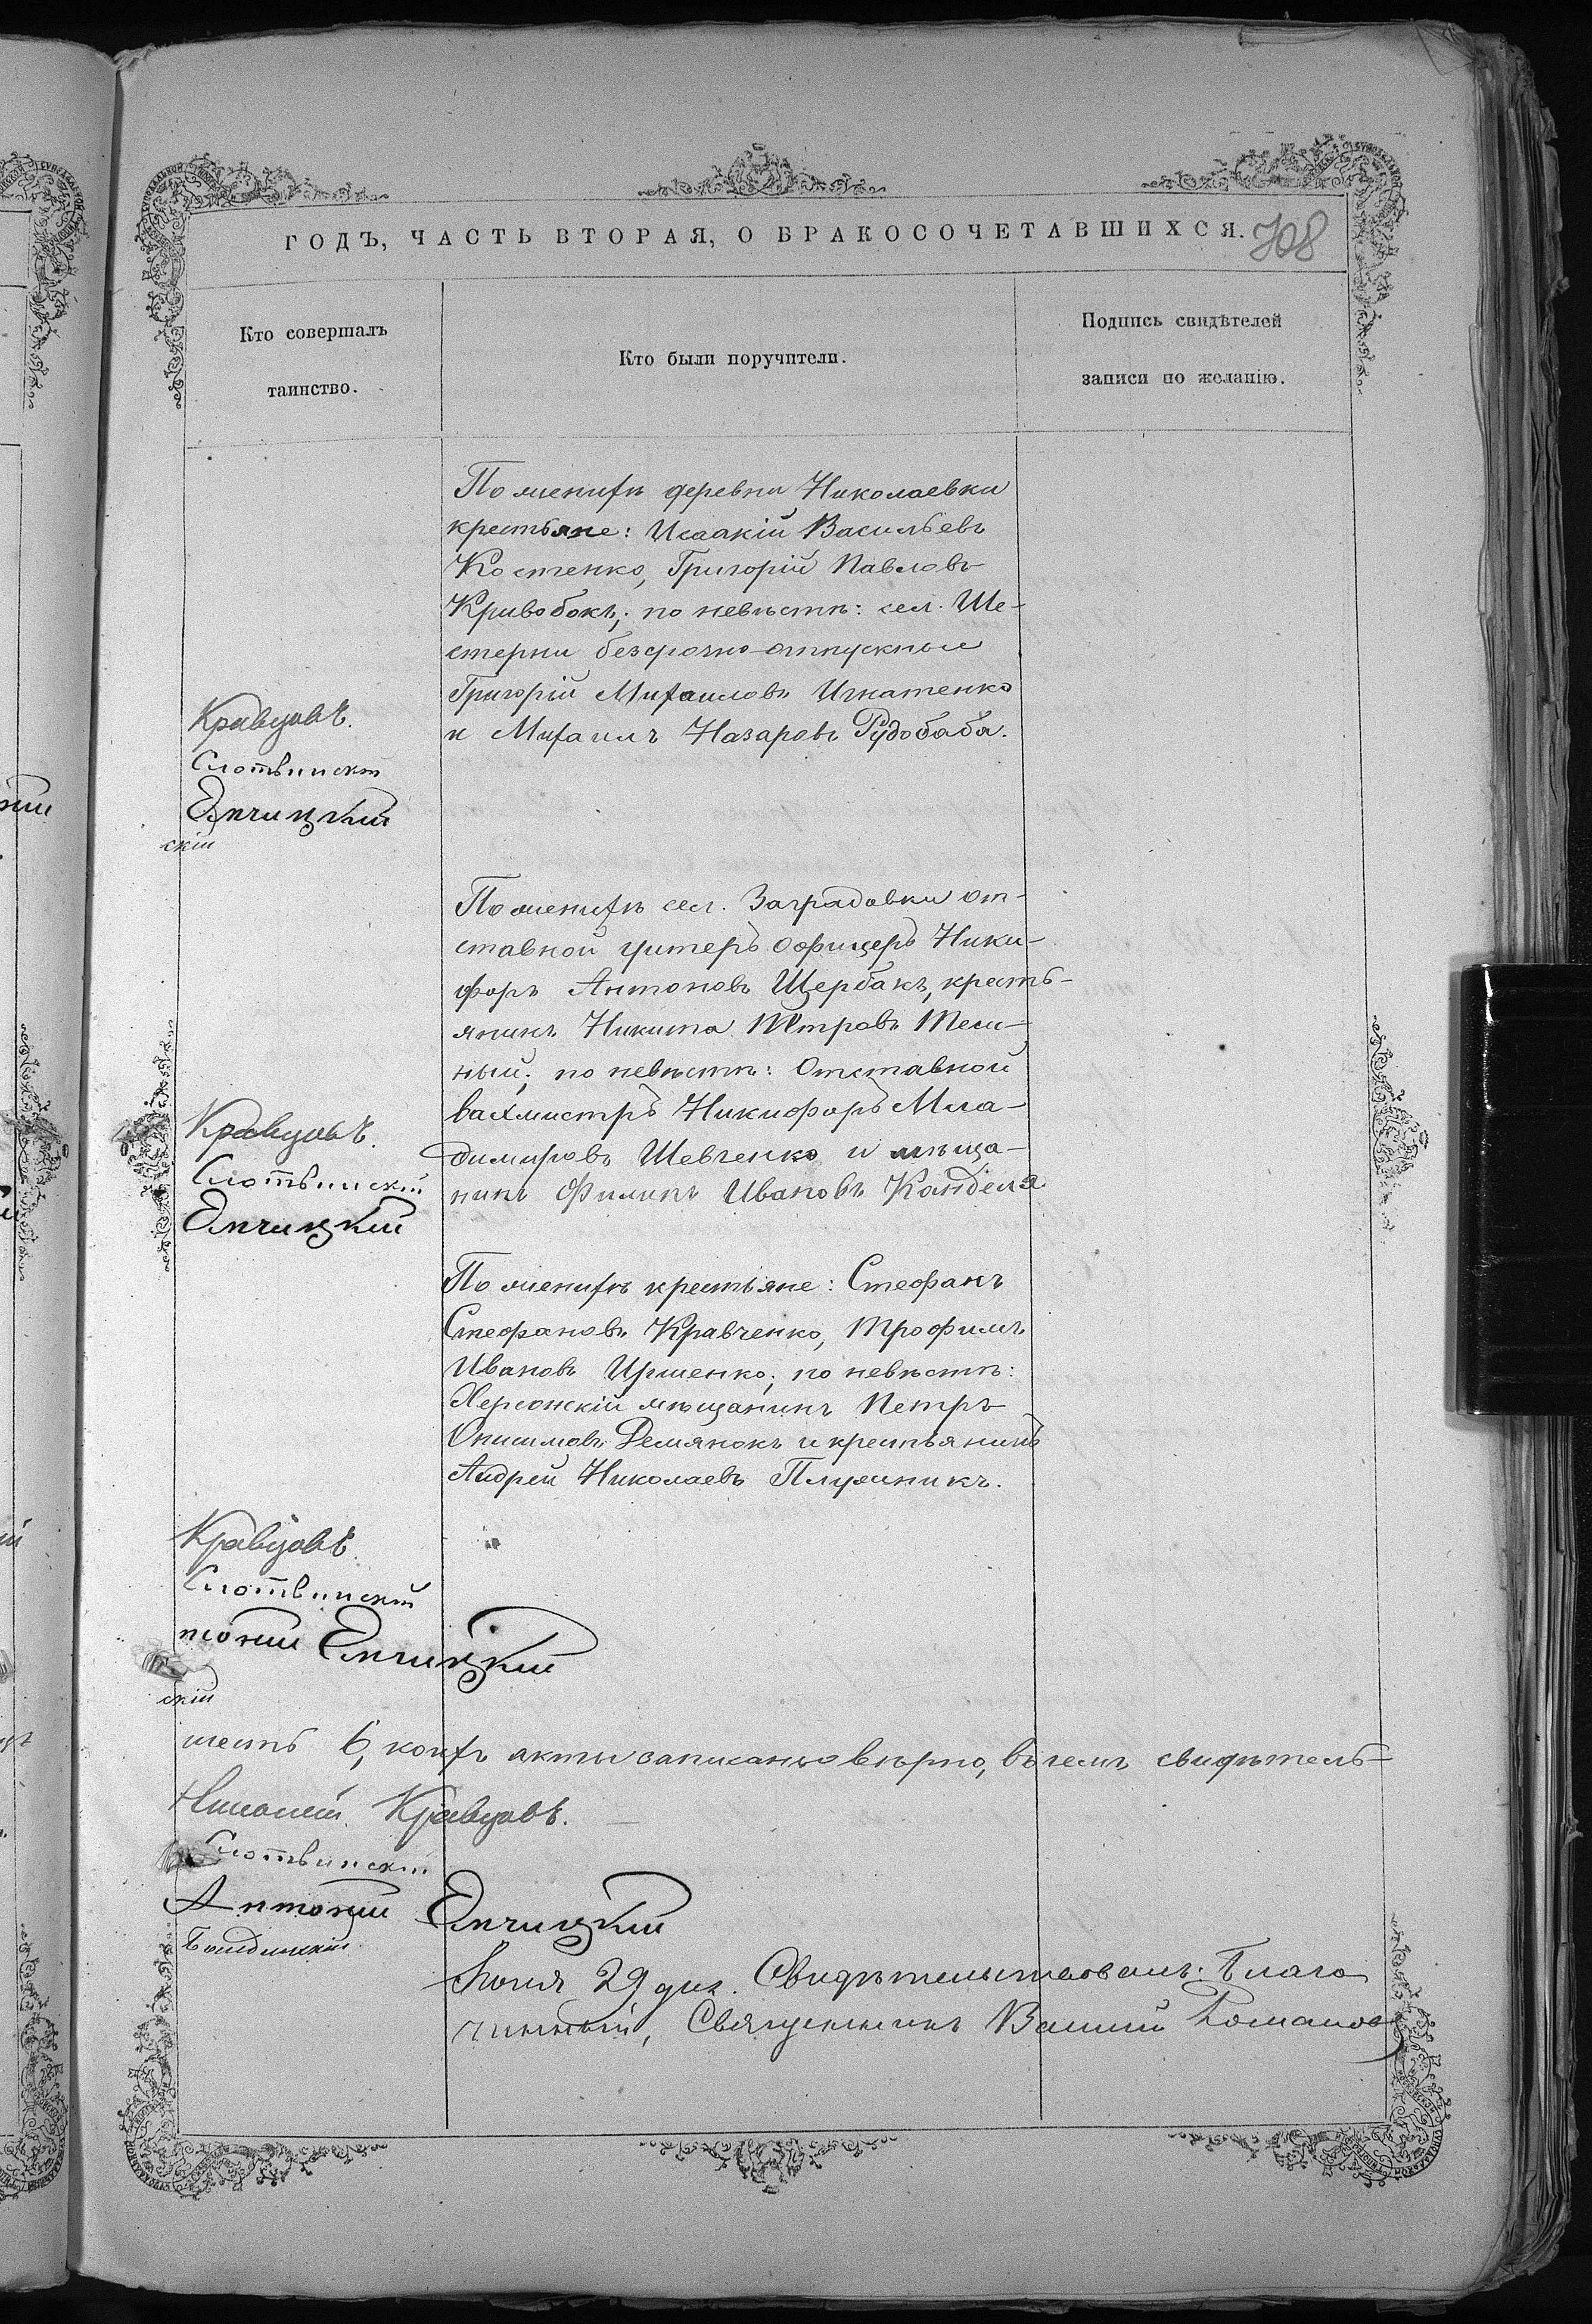 ГОДЪ, ЧАСТЬ ВТОРАЯ, О БРАКОСОЧЕТАВШИХСЯ.
708
Кто совершалъ
таинство.
Кто были поручители.
Подпись свидѣтелей
записи по желанію.
По женихѣ деревни Николаевки
крестьяне: Исаакій Васильевъ
Костенко, Григорій Павловъ
Кривобокъ; по невѣстѣ: сел. Ше-
стерни безсрочно-отпускные
Григорій Михаиловъ Игнатенко
и Михаилъ Назаровъ Рудобаба.
Кравцовъ.
Слотвинскій
Емчицкій
скій
По женихѣ сел. Заградовки от-
ставной унтеръ офицеръ Ники-
форъ Антоновъ Щербакъ, кресть-
янинъ Никита Петровъ
ный; по невѣстѣ: Отставной
вахмистръ Никифоръ
димировъ Шевченко и мѣща-
нинъ Филипъ Ивановъ Кандела
Кравцовъ.
Слотвинскій
Емчицкій
По женихѣ крестьяне: Стефанъ
Стефановъ Кравченко, Трофимъ
Ивановъ по невѣстѣ:
Херсонскій мѣщанинъ Петръ
Онисимовъ Демянокъ и крестьянинъ
Андрей Николаевъ Плужникъ.
Кравцовъ
Слотвинскій
тоній Емчицкій
скій
шесть 6, коихъ акты записаны вѣрно, въ чемъ свидѣтель-
Николай Кравцовъ.
Слотвинскій
Антоній Емчицкій
Іюля 29 дня. Свидѣтельствовалъ: Благо
чинный, Священникъ Романов